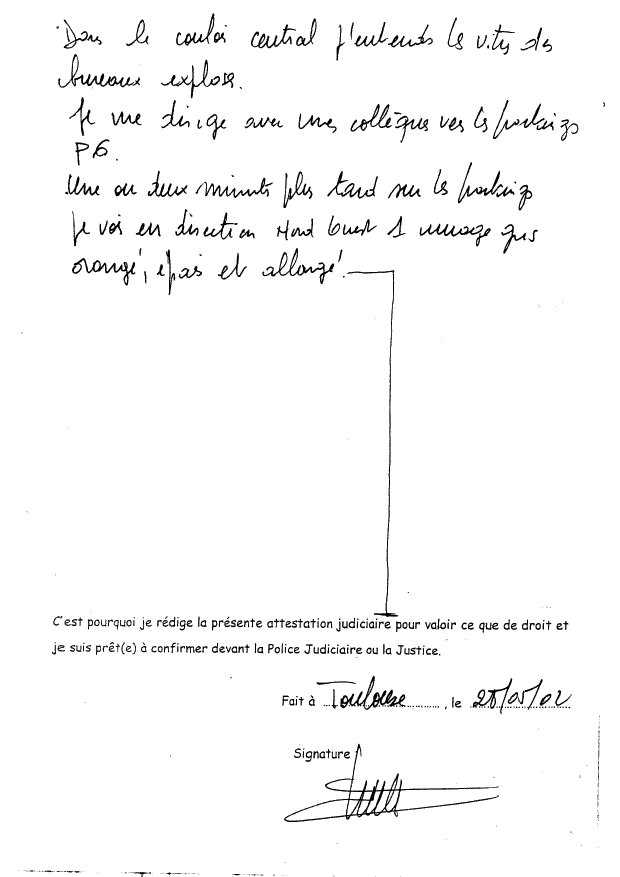 Dans le couloir central j'entends les vitres des
bureaux exploser.
Je me dirige avec mes collègues vers les parkings
P6.
Une ou deux minutes plus tard sur les parkings
je vois en direction Nord Ouest 1 nuage gris
orangé, épais et allongé.
C'est pourquoi je rédige la présente attestation judiciaire pour valoir ce que de droit et
je suis prêt(e) à confirmer devant la Police Judiciaire ou la Justice.
Fait à Toulouse, le 28/05/02
Signature